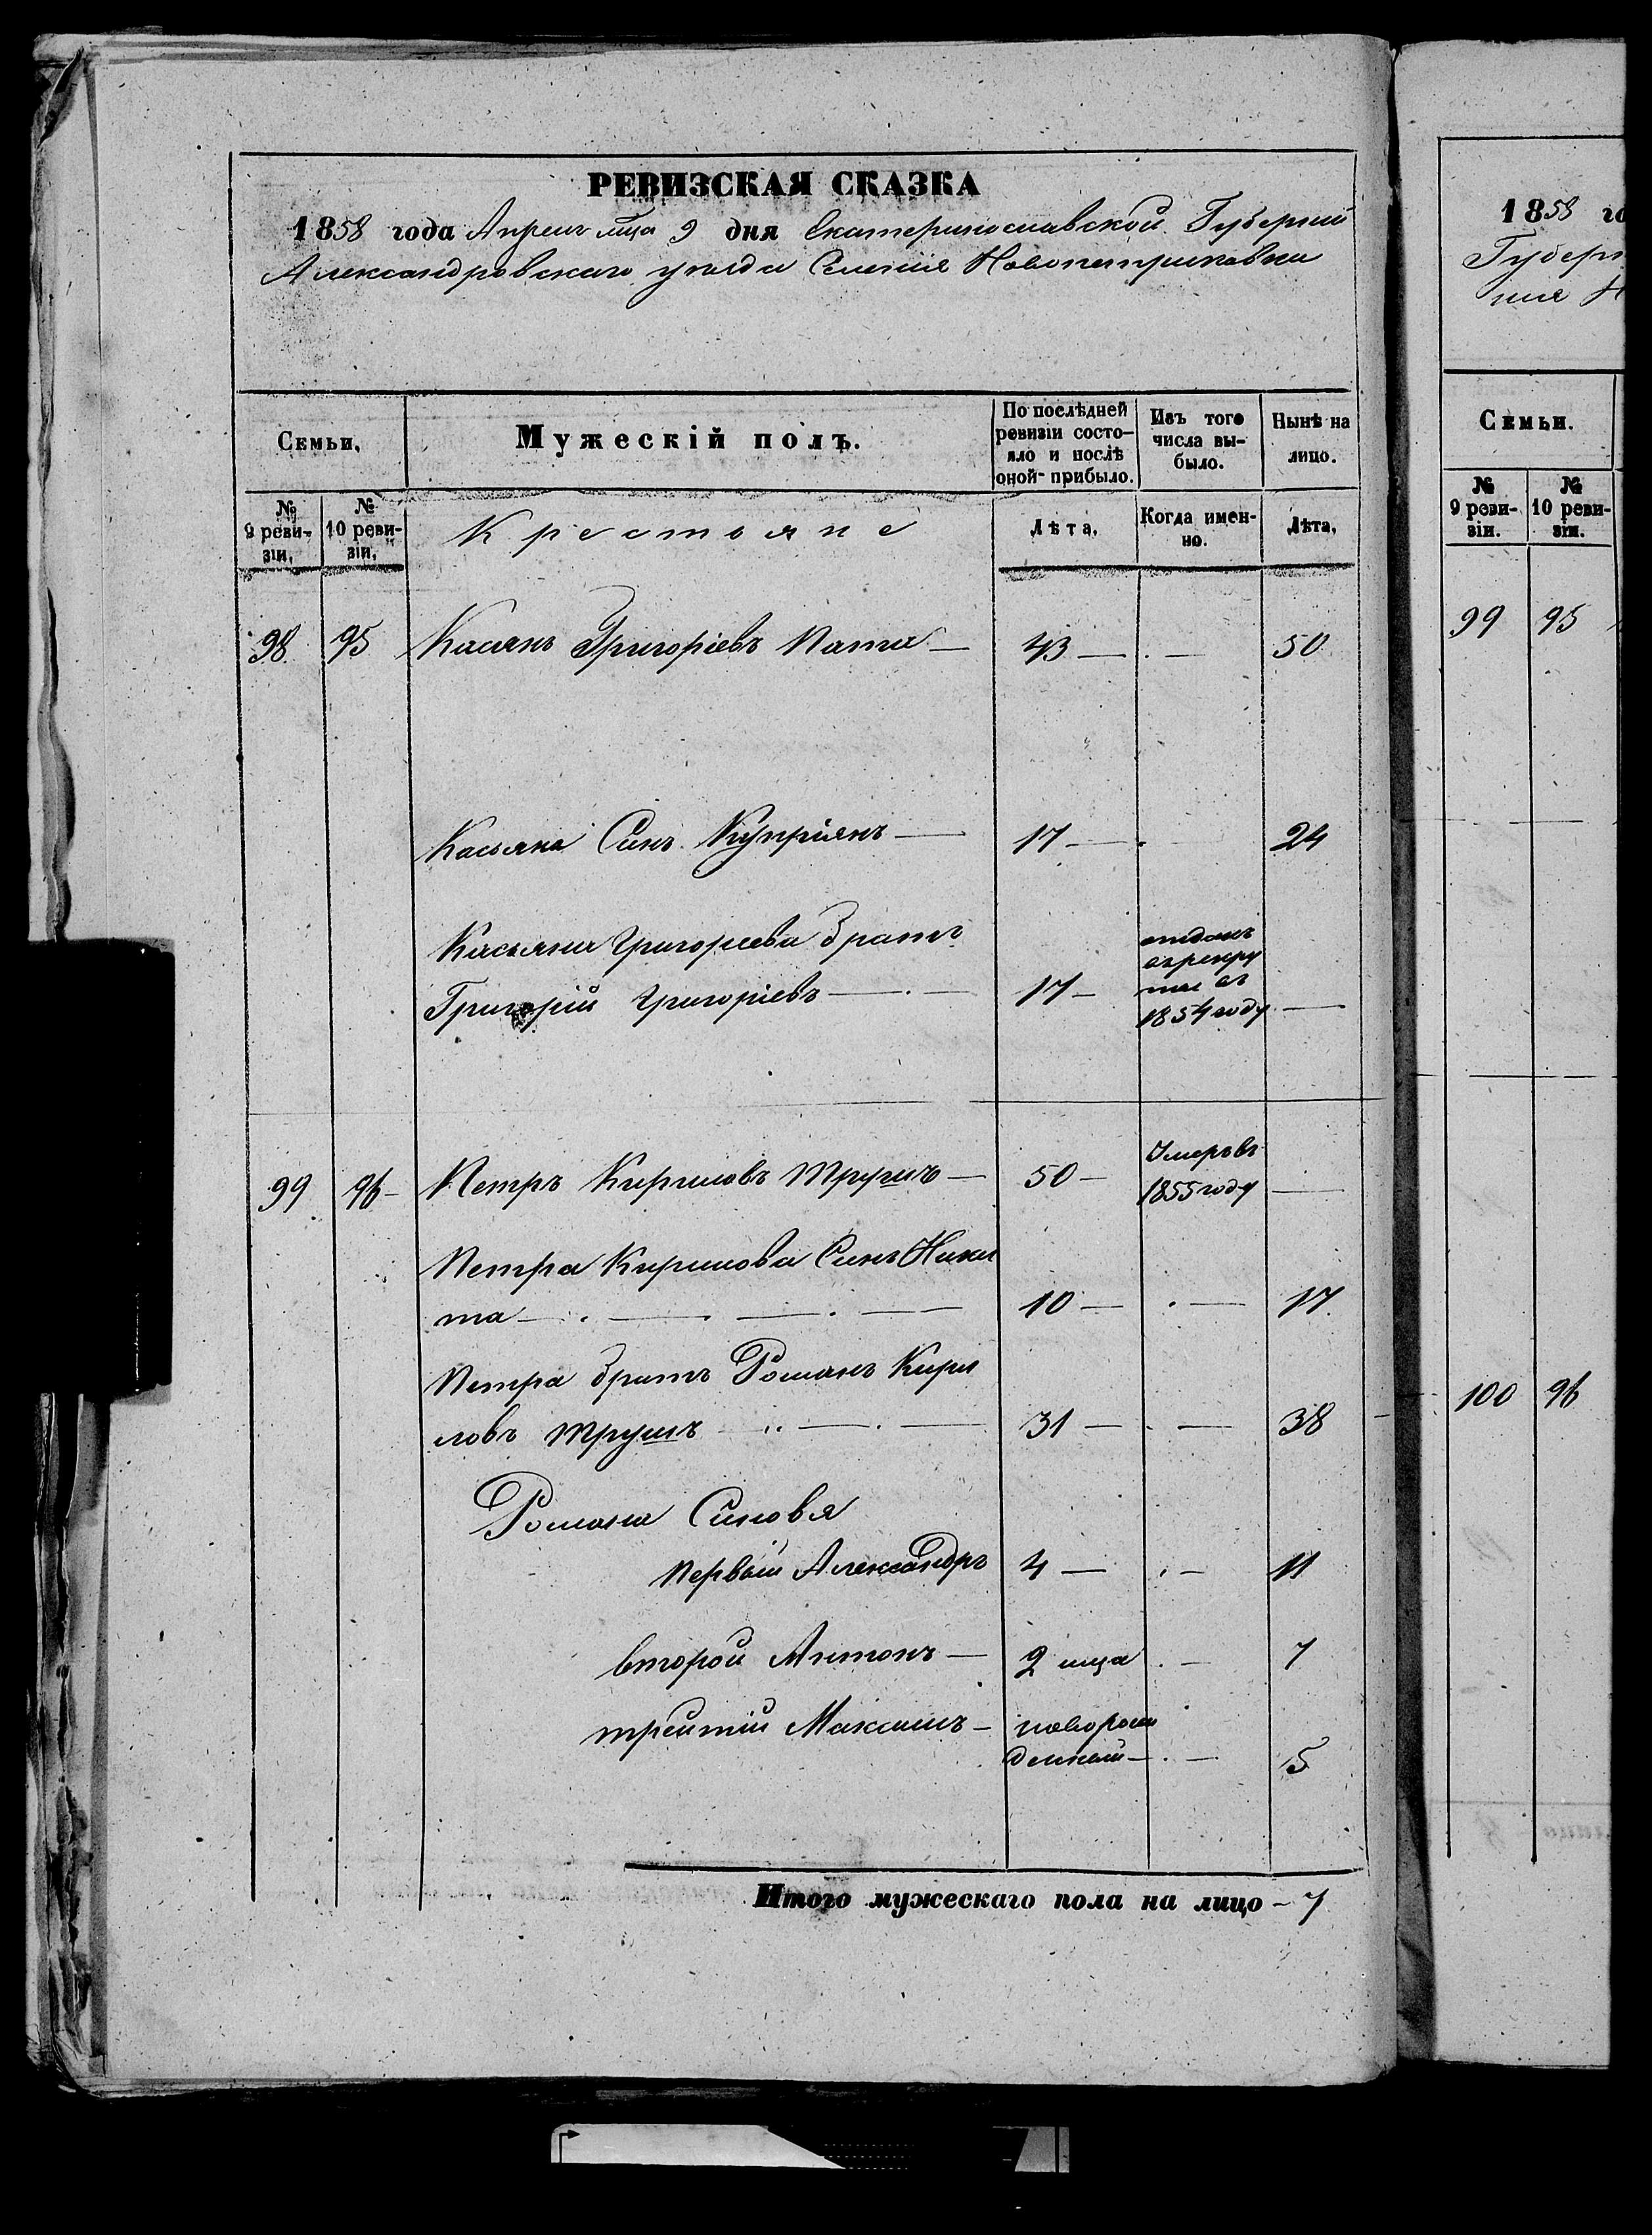 РЕВИЗСКАЯ СКАЗКА
1858 года Апреля мца 9 дня Екатеринославской Губернии
Александровскаго уезда Селение Новопетриковки
Семьи.
Мужескій полъ.
По послѣдней ревизіи состояло и послѣ оной прибыло.
Изъ того числа выбыло.
Нынѣ на лицо.
№ 9 ревизіи.
№ 10 ревизіи.
Крестьяне
Лѣта.
Когда именно.
Лѣта.
98 95 Касянъ Григоріевъ — 43 — . — 50
Касьяна Синъ Купріянъ — 17 — . 24
Касьяна Григориева братъ
Григорій Григоріевъ — . — 17 — отданъ въ рекруты въ 1854 году —
99 96 — Петръ Кириловъ Трушъ — 50 — Умеръ въ 1855 году —
Петра Кирилова Синъ Ники
та — . — — . — 10 — . — 17
Петра братъ Романъ Кири
ловъ Трушъ — .. — . — 31 — . — 38
Романа Синовя
первый Александръ 4 — . — 11
второй Антонъ — 2 мца . — 7
третий Максимъ — новорож
денный — . — 5
Итого мужескаго пола на лицо — 7
1858 го
Губерн
ния Н
Семьи.
№ 9 ревизіи.
№ 10 ревизіи.
99 95
100 96